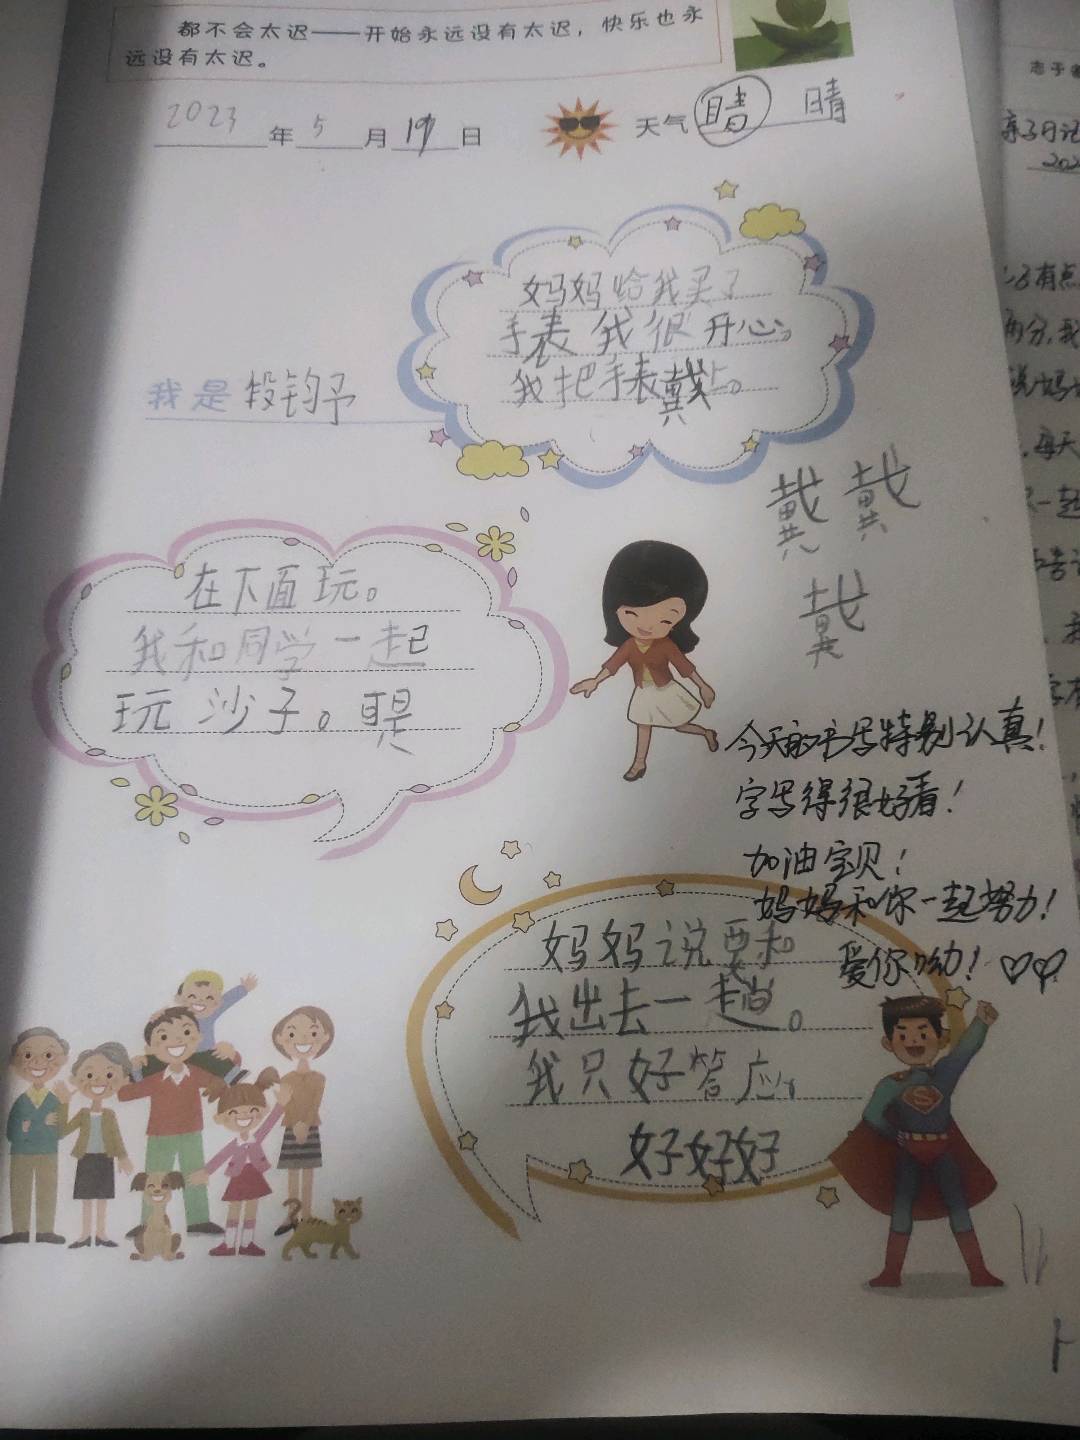 都不会太迟——开始永远没有太迟，快乐也永
远没有太迟。
2023年5月19日 天气 晴 晴
妈妈给我买了
手表我很开心。
我把手表戴上。
我是段钧予
戴戴
戴
在下面玩。
我和同学一起
玩沙子。
今天的书写特别认真！
字写得很好看！
加油宝贝！
妈妈和你一起努力！
爱你呦！♡♡
妈妈说要和
我出去一趟。
我只好答应，
好好好
志于
亲子日记
202
有点
两分，我
说妈妈
，每天
一起